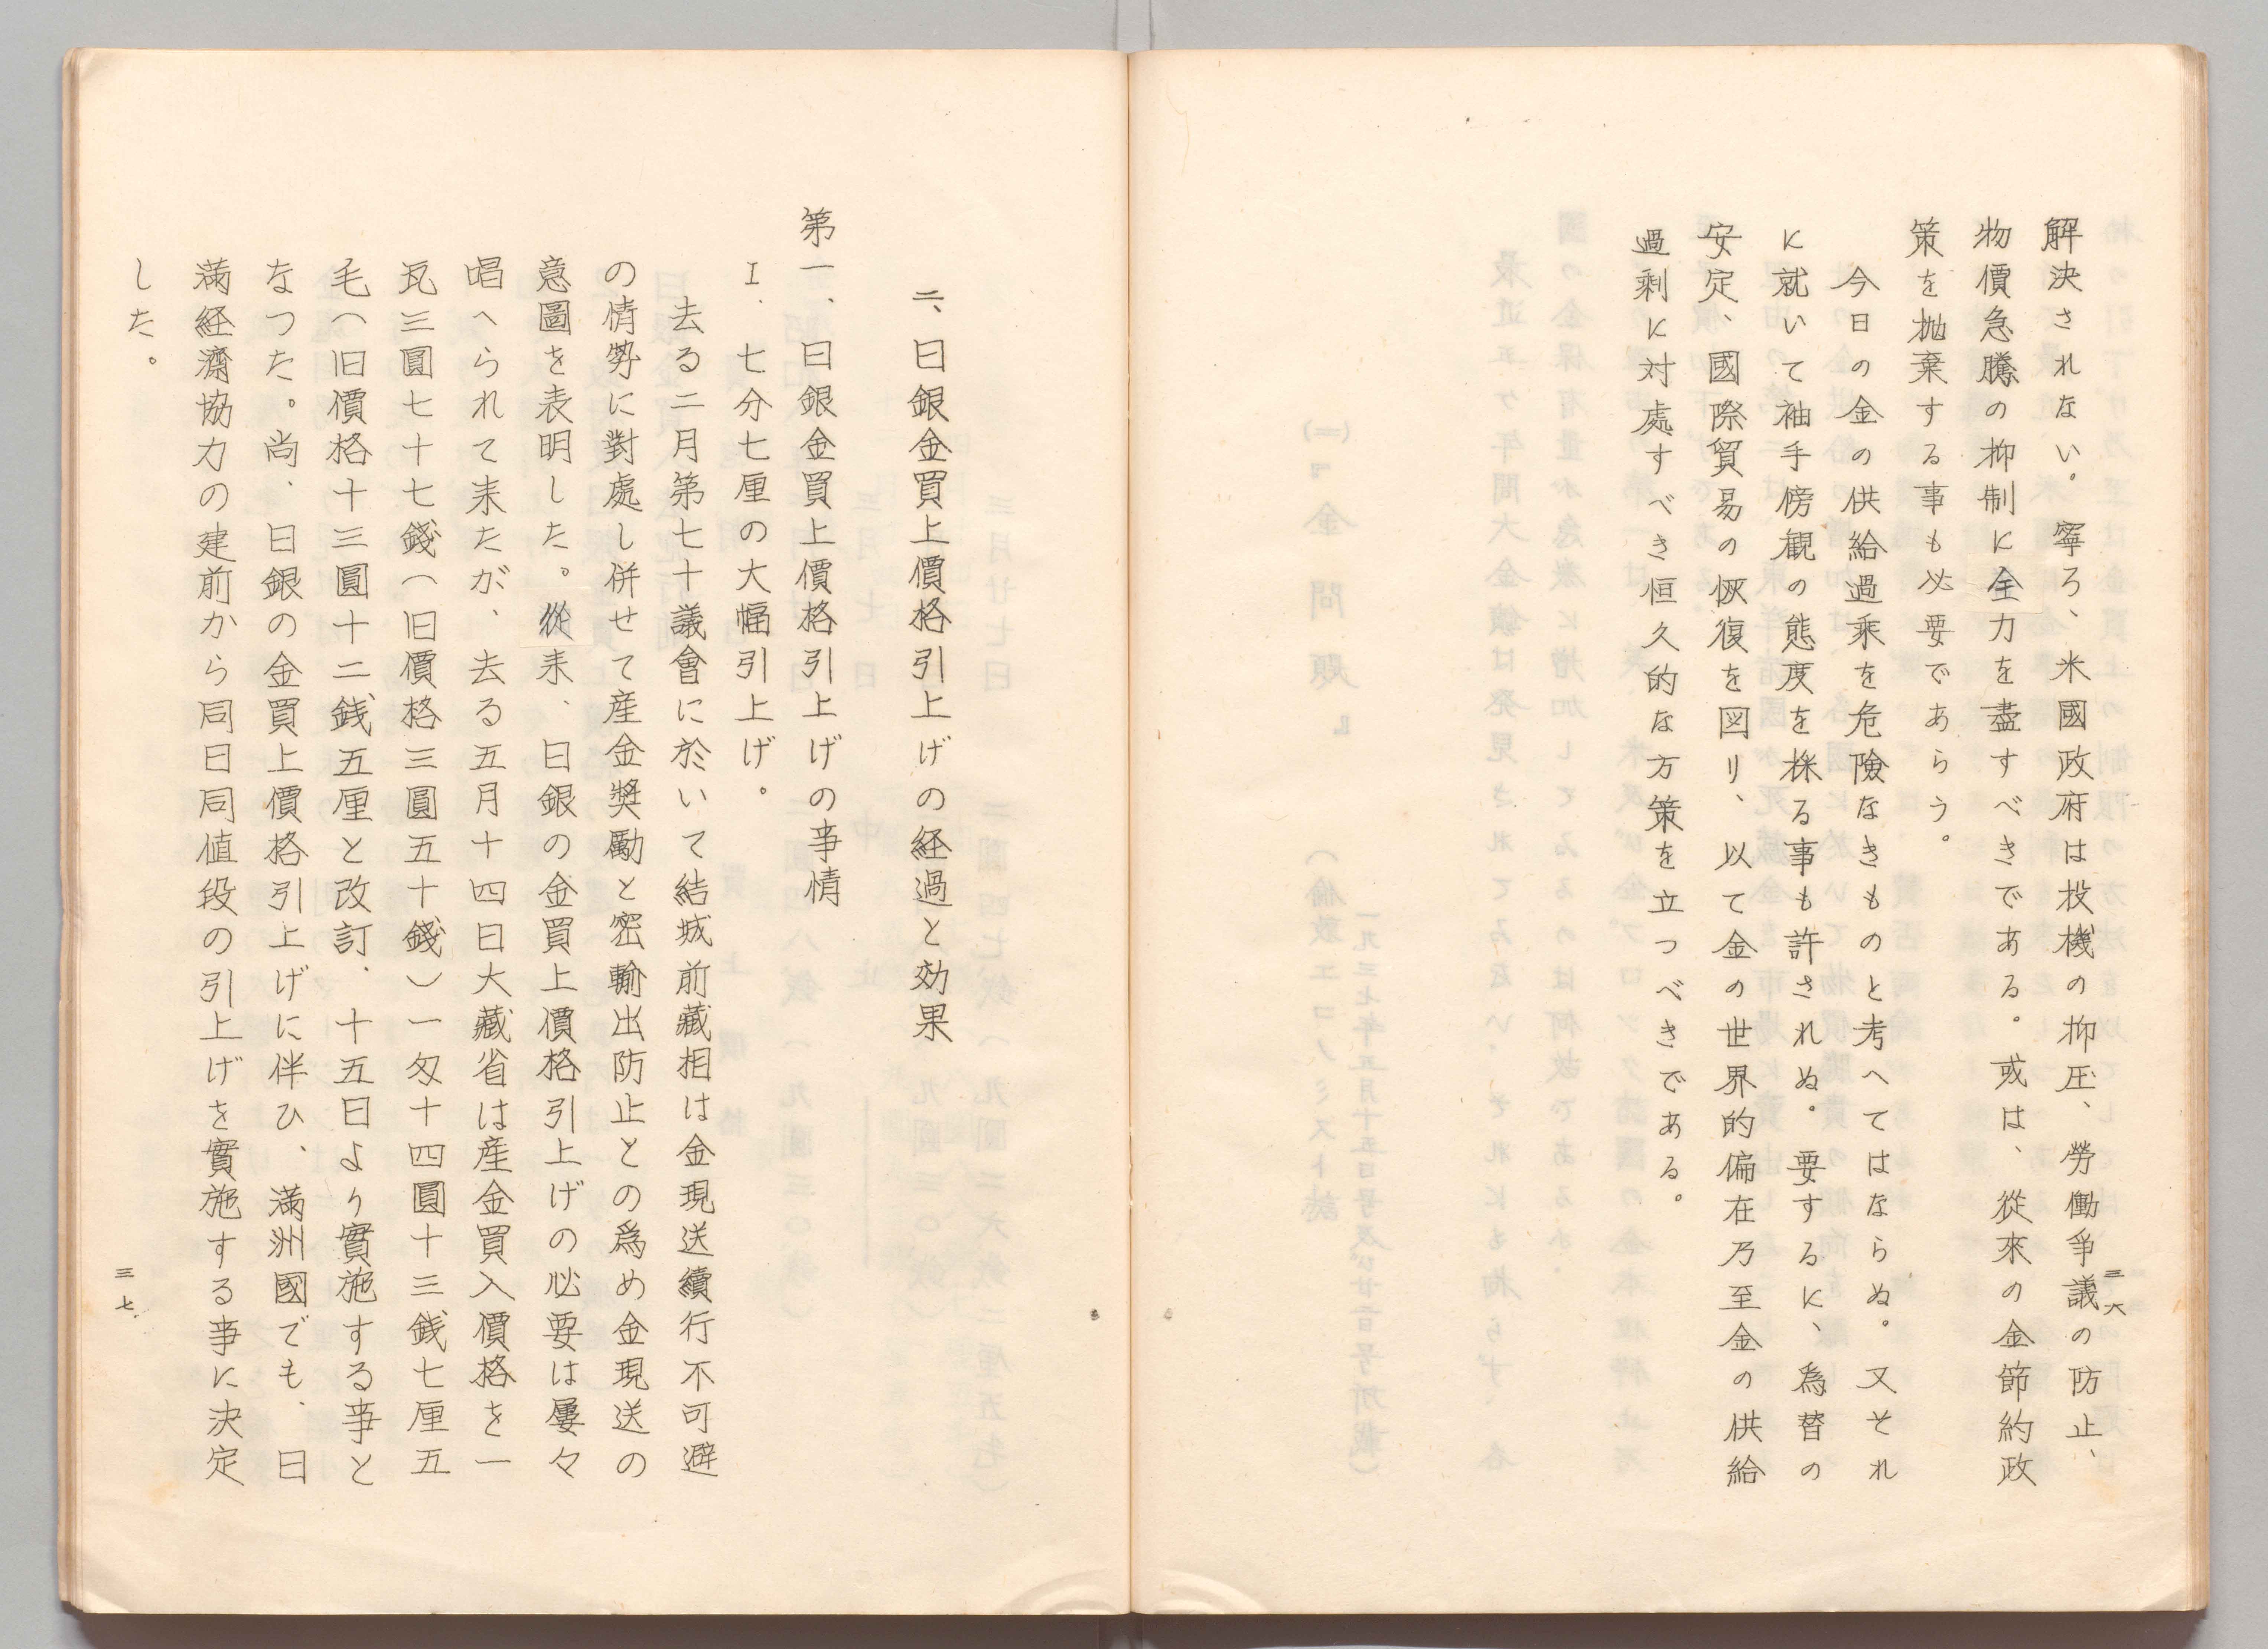 解決されない。寧ろ、米國政府は投機の抑圧、勞働爭議の防止、
物價急騰の抑制に全力を盡すべきである。或は、從來の金節約政
策を抛棄する事も必要であらう。
今日の金の供給過乘を危險なきものと考へてはならぬ。又それ
に就いて袖手傍観の態度を採る事も許されぬ。要するに、為替の
安定、國際貿易の恢復を図り、以て金の世界的偏在乃至金の供給
過剰に対處すべき恒久的な方策を立つべきである。
三六
二、日銀金買上價格引上げの経過と効果
第一、日銀金買上價格引上げの事情
I. 七分七厘の大幅引上げ。
去る二月第七十議會に於いて結城前藏相は金現送續行不可避
の情勢に對處し併せて産金奬勵と密輸出防止との爲め金現送の
意圖を表明した。從来、日銀の金買上價格引上げの必要は屢々
唱へられて来たが、去る五月十四日大藏省は産金買入價格を一
瓦三圓七十七錢（旧價格三圓五十錢）一匁十四圓十三銭七厘五
毛（旧價格十三圓十二銭五厘と改訂、十五日より實施する事と
なつた。尚、日銀の金買上價格引上げに伴ひ、満洲國でも、日
満経濟協力の建前から同日同値段の引上げを實施する事に決定
した。
三七